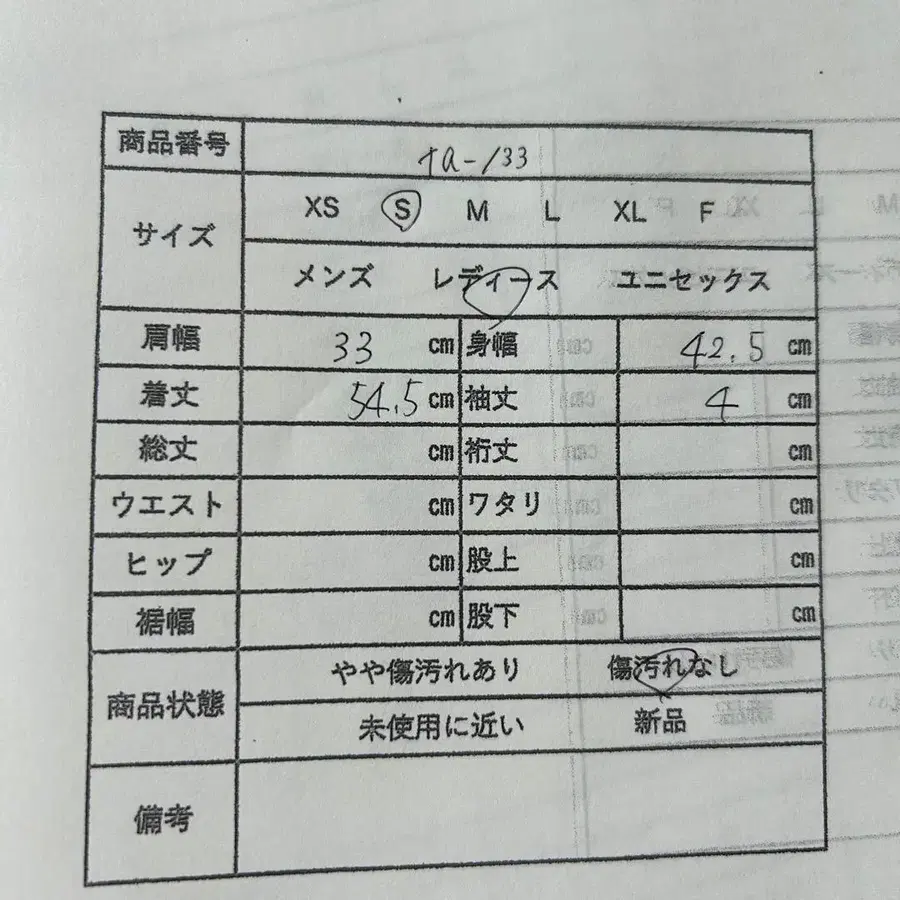 商品番号 ta-133
サイズ XS S M L XL F
メンズ レディース ユニセックス
肩幅 33 cm 身幅 42.5 cm
着丈 54.5 cm 袖丈 4 cm
総丈 cm 裄丈 cm
ウエスト cm ワタリ cm
ヒップ cm 股上 cm
裾幅 cm 股下 cm
商品状態 やや傷汚れあり 傷汚れなし
未使用に近い 新品
備考